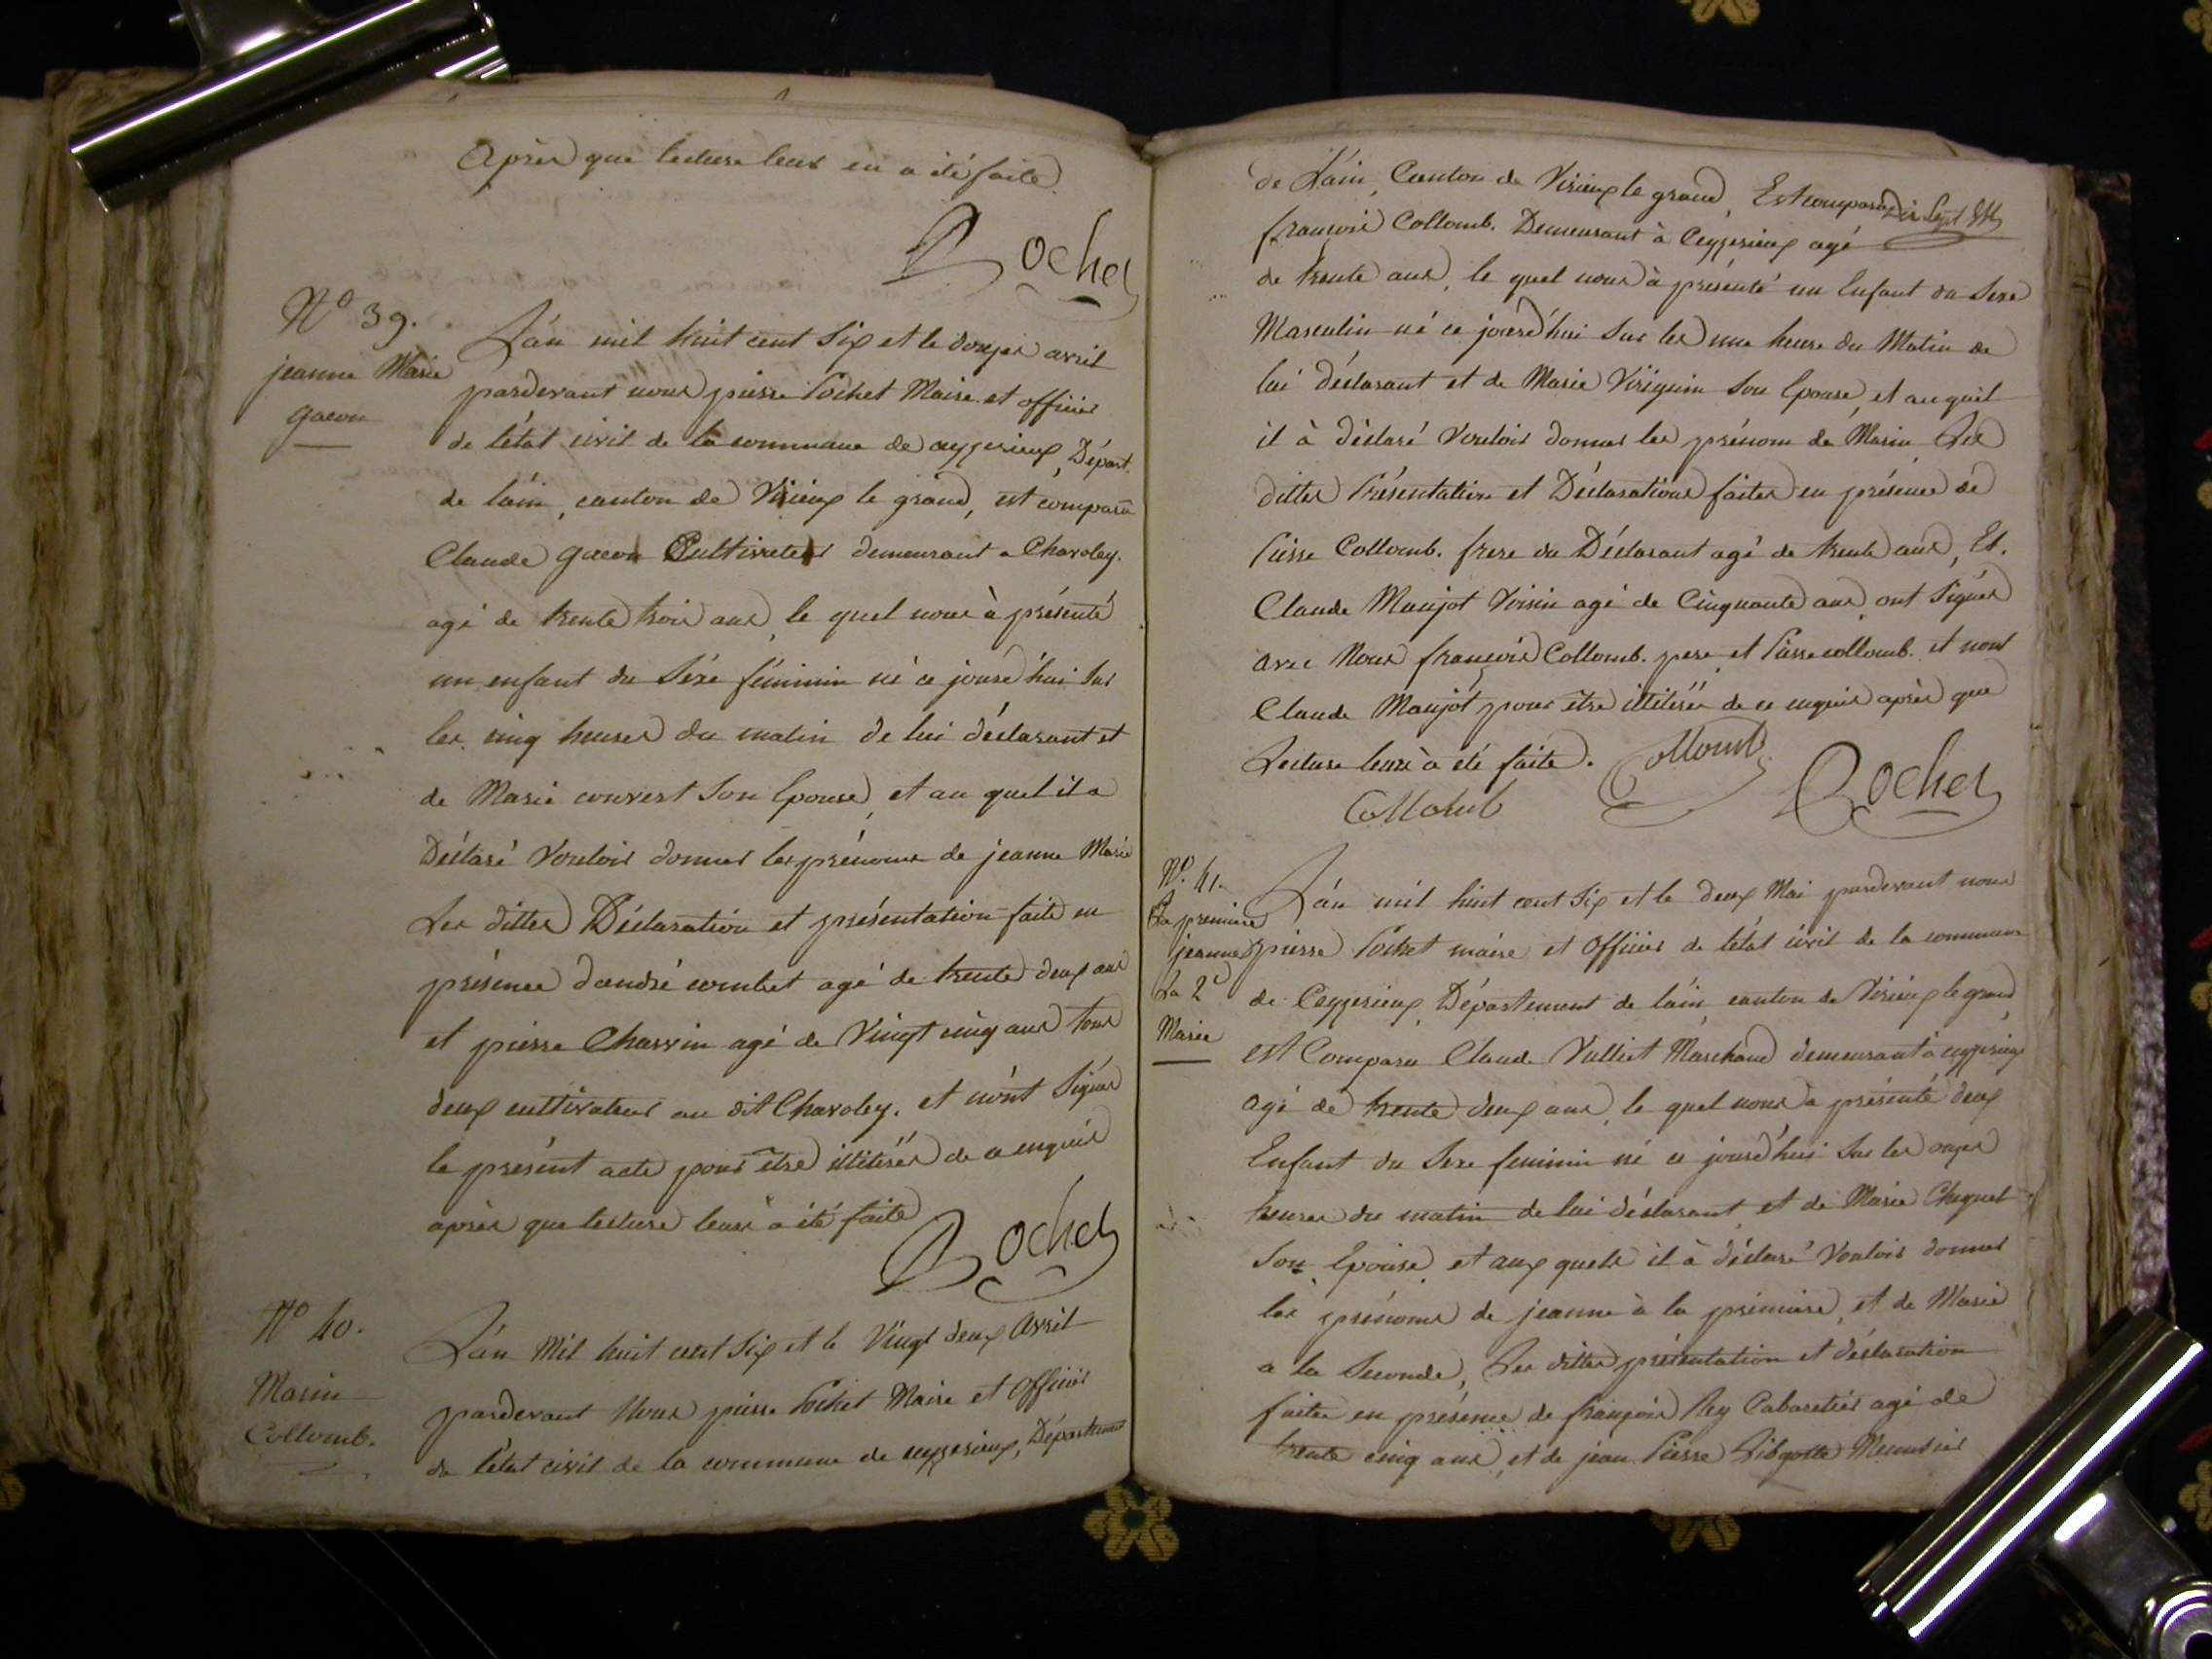 Après que lecture leur en a été faite
Pochet
N° 39.
jeanne Marie
gacon
L'an mil huit cent Six et le douze avril
pardevant nous pierre Pochet Maire et officier
de l'état civil de la commune de ceyzerieux, Départ.
de l'ain, canton de Virieux le grand, est comparu
Claude gacon Cultivateur demeurant a Chavoley.
agé de trente trois ans, le quel nous à présenté
un enfant du Séxe féminin né ce jourd'hui sur
les cinq heures du matin de lui déclarant et
de Marie convert Son Epouse, et au quel il a
Déclaré Vouloir donner les prénoms de jeanne Marie
Les dittes Déclaration et présentation faite en
présence d'andré combet agé de trente deux ans
et pierre Charvin agé de Vingt cinq ans tous
deux cultivateurs au dit Chavoley. et n'ont Signés
le présent acte pour être illitérés de ce enquis
après que lecture leur à été faite
Pochet
N° 40.
Marin
Collomb.
L'an Mil huit cent Six et le Vingt deux Avril
pardevant Nous pierre Pochet Maire et officier
de l'état civil de la commune de ceyzerieux, Département
de L'ain, Canton de Virieux le grand, Est comparu
françois Collomb. Demeurant à Ceyzerieux agé
de trente ans, le quel nous à présenté un Enfant du Sexe
Masculin né ce jourd'hui Sur les une heure du Matin de
lui déclarant et de Marie Son Epouse, et au quel
il à déclaré Vouloir donner les prénom de Marin Les
dittes Présentation et Déclarations faites en présence de
Pierre Collomb. frere du Déclarant agé de trente ans, Et.
Claude Maujot Voisin agé de Cinquante ans, ont Signés
avec Nous françois Collomb. pere et Pierre collomb. et nont
Claude Maujot pour être illitérés de ce enquis après que
Lecture leur à été faite.
Collomb
Collomb
Pochet
N° 41.
La premiere
jeanne
La 2e
Marie
L'an mil huit cent Six et le deux Mai pardevant nous
pierre Pochet maire et Officier de l'état civil de la commune
de Ceyzerieux Département de l'ain, canton de Virieux le grand,
est Comparu Claude Vulliet Marchand demeurant à ceyzerieux
agé de trente deux ans, le quel nous a présenté deux
Enfant du Sexe feminin né ce jourd'hui Sur les onze
heures du matin de lui déclarant et de Marie Chequet
Son Epouse, et aux quels il à déclaré Vouloir donner
les prénoms de jeanne à la prémiere, et de Marie
a la Seconde, Les dittes présentation et déclaration
faites en présence de françois Rey Cabaretier agé de
trente cinq ans, et de jean Pierre Menuisier